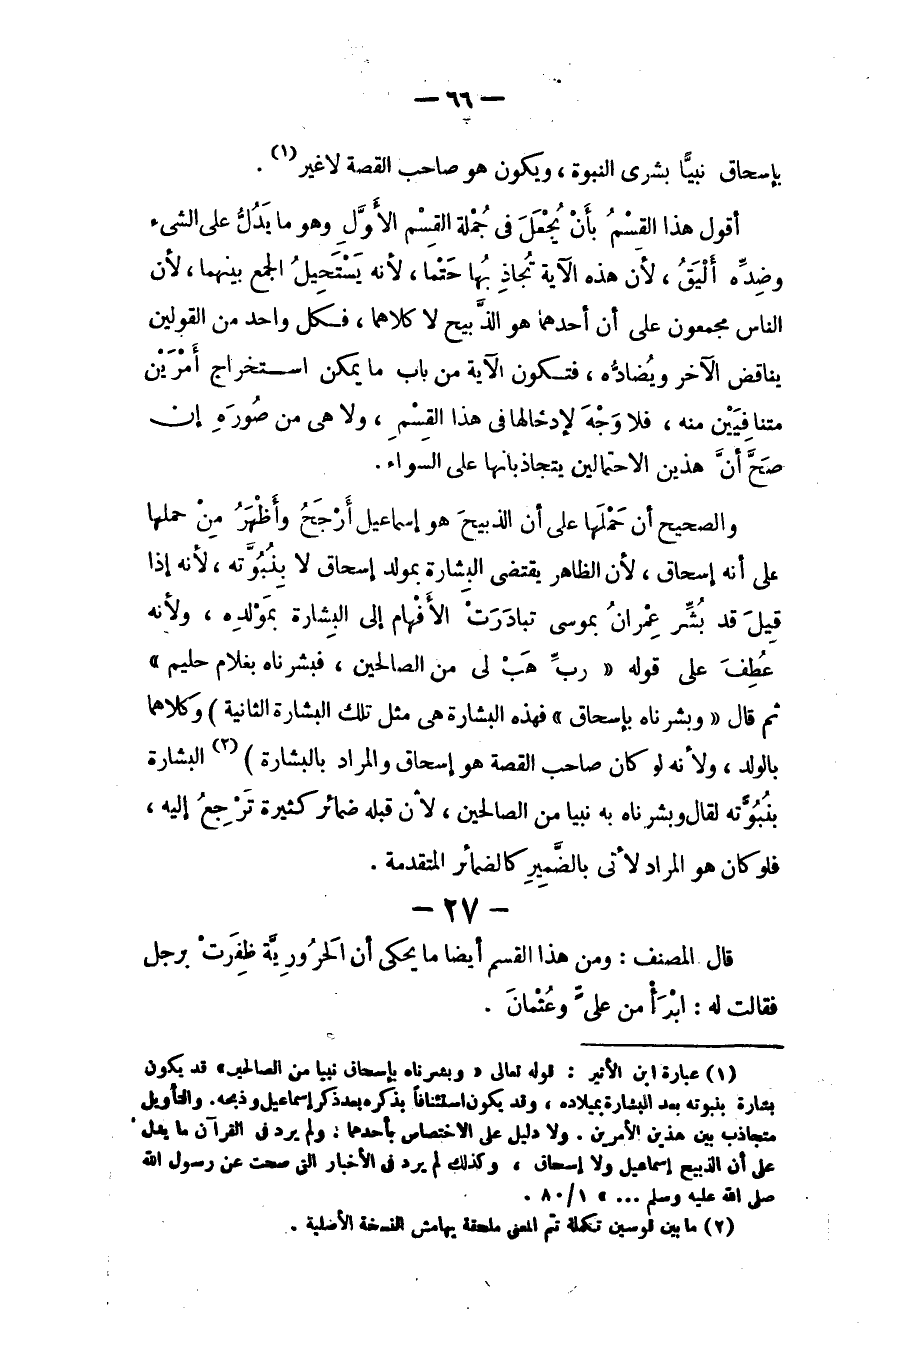 — ٦٦ —
بإسحاق نبيًّا بشرى النبوة ، ويكون هو صاحب القصة لاغير(١) .
أقول هذا القسْمُ بأَنْ يُجْعَلَ فى جُمْلة القِسْم الأَوَّلِ وهو ما يَدُلُّ على الشىء
وضِدِّه أَلْيَقُ ، لأن هذه الآية تُجاذِبُها حَتْما ، لأنه يَسْتَحِيلُ الجمع بينهما ، لأن
الناس مجمعون على أن أحدهما هو الذَّبيح لا كلاهما ، فكل واحد من القولين
يناقض الآخر ويُضادُّه ، فتكون الآية من باب ما يمكن استخراج أَمْرَيْن
متنافِيَيْن منه ، فلا وَجْهَ لإدخالها فى هذا القِسْمِ ، ولا هى من صُورَهِ إن
صَحَّ أنَّ هذين الاحتمالين يتجاذبانها على السواء .
والصحيح أن حَمْلَها على أن الذبيحَ هو إسماعيل أَرْجَحُ وأَظْهَرُ مِنْ حملها
على أنه إسحاق ، لأن الظاهر يقتضى البِشارة بمولد إسحاق لا بِنُبُوَّته ، لأنه إذا
قِيلَ قد بُشِّر عِمْرانُ بموسى تبادَرَتْ الأَفْهام إلى البِشارة بمَوْلدِه ، ولأنه
عُطِفَ على قوله « ربِّ هَبْ لى من الصالحين ، فبشرناه بغلام حليم »
ثم قال « وبشرناه بإسحاق » فهذه البشارة هى مثل تلك البشارة الثانية ) وكلاهما
بالولد ، ولأنه لو كان صاحب القصة هو إسحاق والمراد بالبشارة )(٢) البشارة
بنُبُوَّته لقال وبشرناه به نبيا من الصالحين ، لأن قبله ضمائر كثيرة تَرْجِعُ إليه ،
فلو كان هو المراد لأتى بالضَّمِيرِ كالضمائر المتقدمة .
— ٢٧ —
قال المصنف : ومن هذا القسم أيضا ما يحكى أن الحَرُورِيَّة ظفِرَتْ برجل
فقالت له : ابْرَأْ من علىٍّ وعُثْمانَ .
(١) عبارة ابن الأثير : قوله تعالى « وبشرناه بإسحاق نبيا من الصالحين » قد يكون
بشارة بنبوته بعد البشارة بميلاده ، وقد يكون استئنافاً بذكره بعد ذكر إسماعيل وذبحه . والتأويل
متجاذب بين هذين الأمرين . ولا دليل على الاختصاص بأحدهما : ولم يرد فى القرآن ما يدل
على أن الذبيح إسماعيل ولا إسحاق ، وكذلك لم يرد فى الأخبار التى صحت عن رسول الله
صلى الله عليه وسلم ... » ٨٠/١ .
(٢) ما بين قوسين تكملة تتم المعنى ملحقة بهامش النسخة الأصلية .